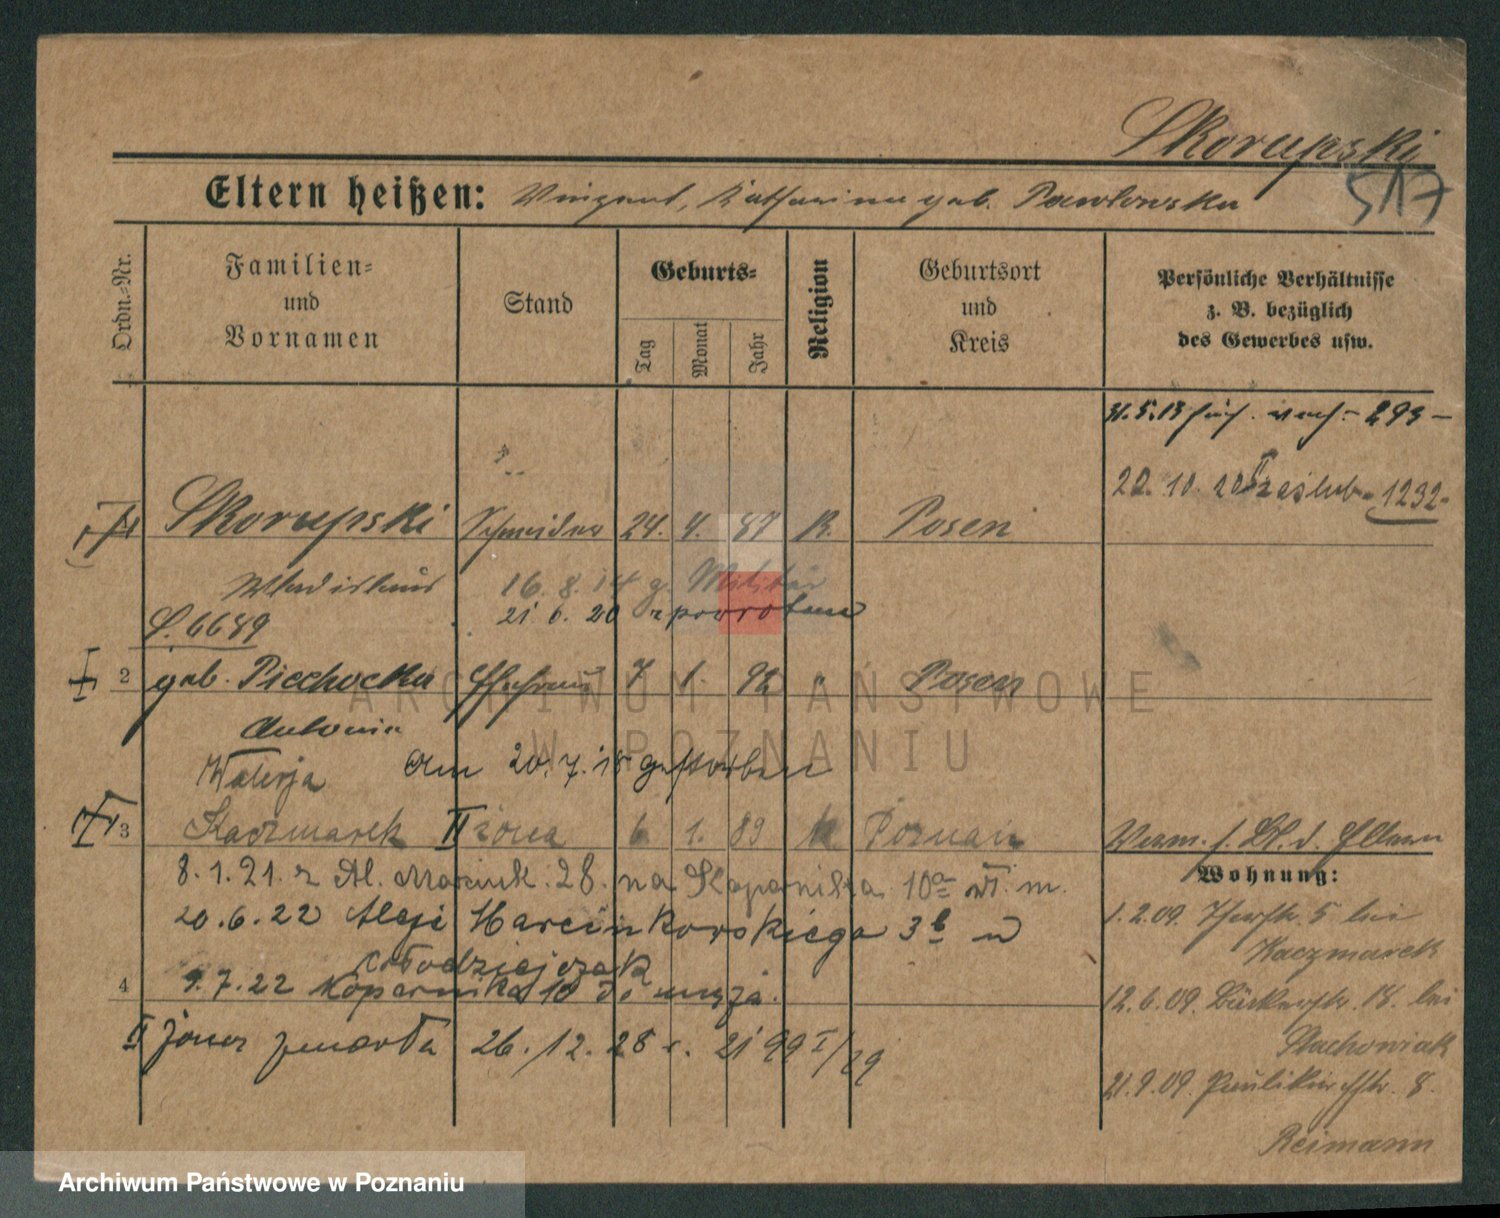 Skorupski
517
Eltern heißen: Vinzent, Katharina geb. Pawlowska
Ordn.-Nr.
Familien-
und
Vornamen
Stand
Geburts-
Tag
Monat
Jahr
Religion
Geburtsort
und
Kreis
Persönliche Verhältnisse
z. B. bezüglich
des Gewerbes usw.
31.5.13 - 293 -
20.10.20 II zaślub. - 1232 -
Skorupski Schneider 24. 4. 87 R. Posen
Wladislaus 16.8.14 z. Militär
21 6. 20 z powrotem
S. 6689
2 geb. Piechocka Ehefrau 7 1. 92 " Posen
Antonie
Walerja am 20.7.18 gestorben
3 Kaczmarek II żona 6 1. 89 k Poznań
8.1.21. z Al. Marcink. 28. na Kopernika 10a m.
20.6.22 Aleje Marcinkowskiego 3b
Kołodziejczak
4 9.7.22 Kopernika 10 do męża.
II żona zmarła 26./12. 28 r. 21 99 I/29
Verm. s. Bl. d. Eltern
Wohnung:
1.2.09. 5 bei
Kaczmarek
12.6.09. Bäckerstr. 18. bei
Stachowiak
21.9.09. Paulikirchstr. 8.
Reimann
ARCHIWUM PAŃSTWOWE
W POZNANIU
Archiwum Państwowe w Poznaniu